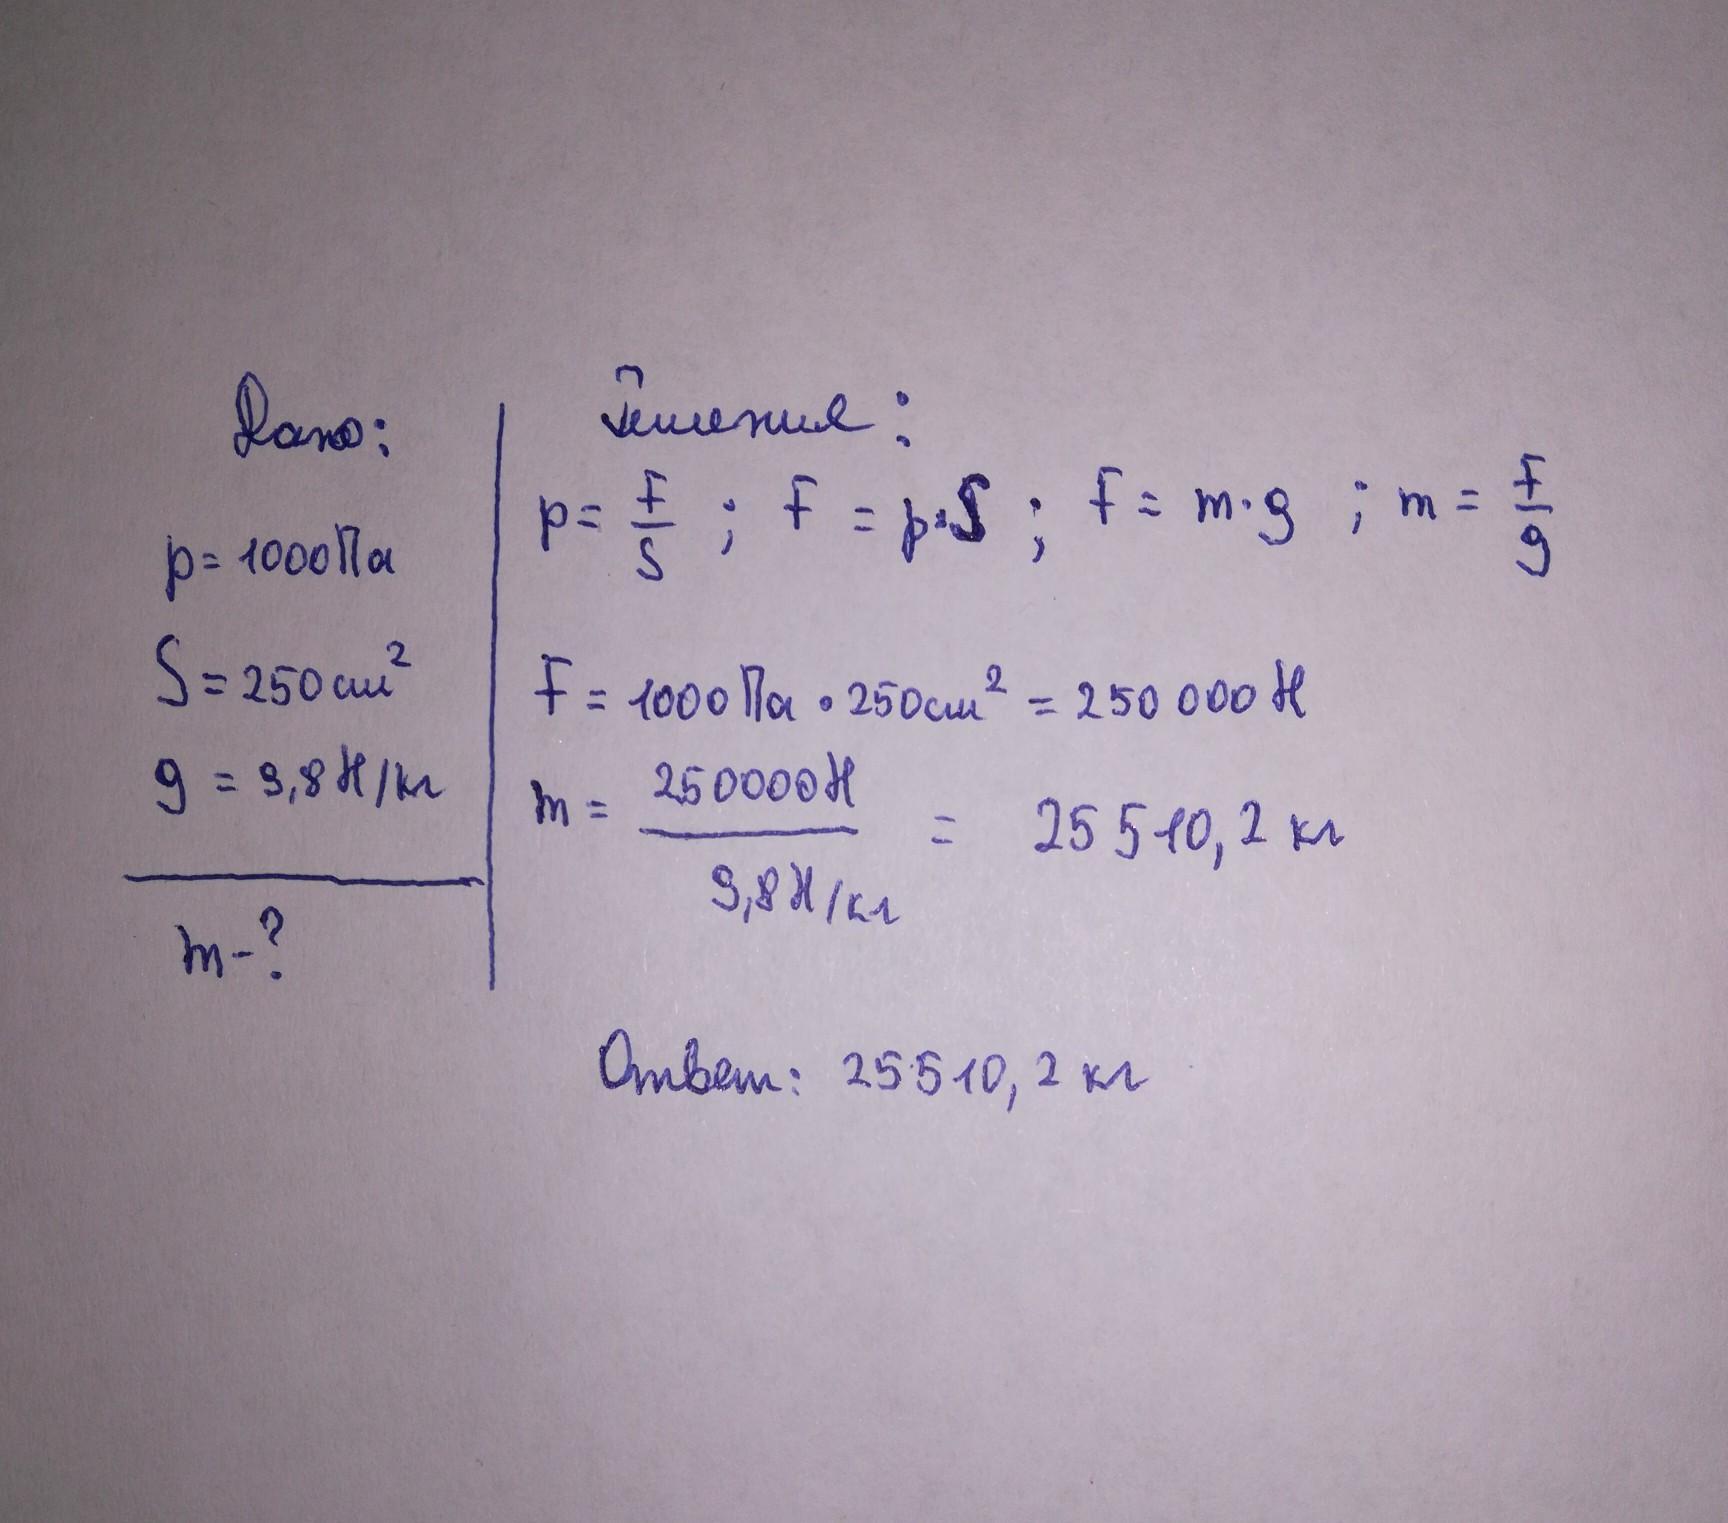 Дано:
p = 1000 Па
S = 250 см²
g = 9,8 Н/кг
m - ?
Решение:
p = F/S ; F = p·S ; F = m·g ; m = F/g
F = 1000 Па · 250 см² = 250 000 Н
m = 250000 Н / 9,8 Н/кг = 25510,2 кг
Ответ: 25510,2 кг